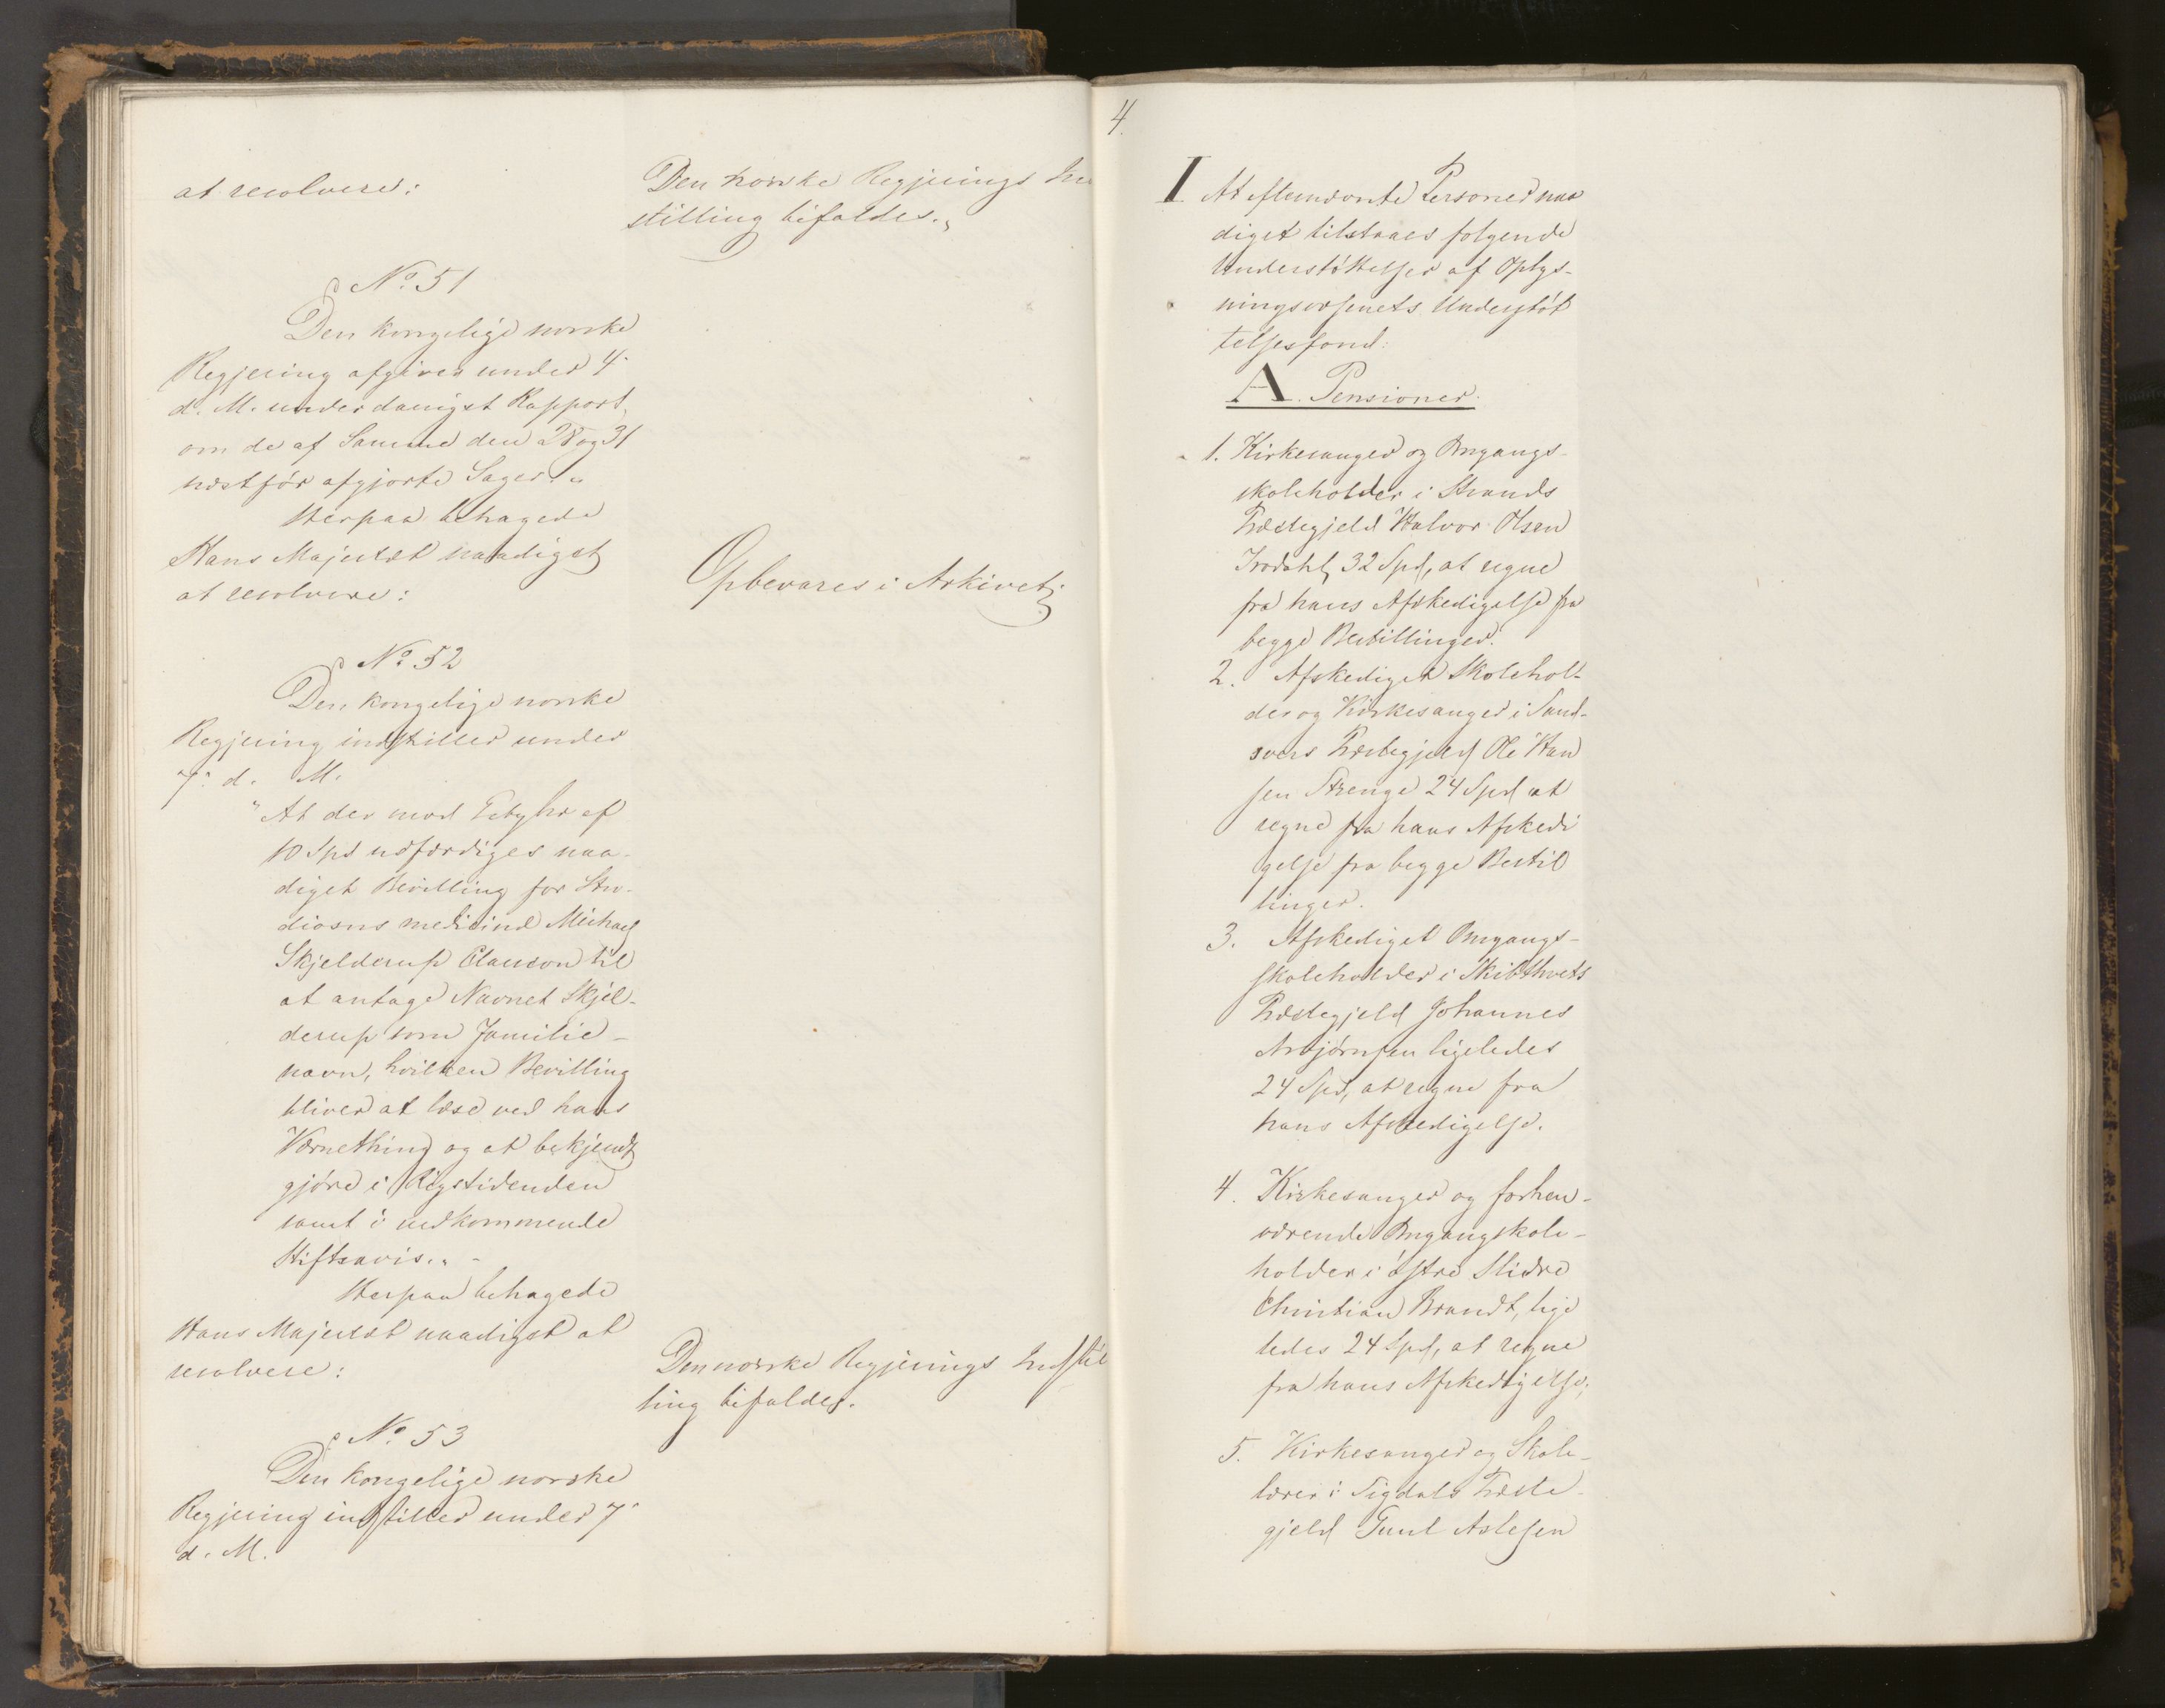 at resolvere:
Den norske Regjerings In
stilling bifaldes.„
No. 51
Den kongelige norske
Regjering afgiver under 4.
d. M. underdanigst Rapport
om de af Samme den 28 og 31
næstför afgjorte Sager.„
Herpaa behagede
Hans Majestæt naadigst
at resolvere:
Opbevares i Arkivet;
No. 52
Den kongelige norske
Regjering indstiller under
7. d. M.
"At der mod Gebyhr af
10 Spd udfærdiges naa-
digst Bevilling for Stu-
diosus medicinæ Michael
Skjelderup Clauson til
at antage Navnet Skjel-
derup som Familie-
navn, hvilken Bevilling
bliver at læse ved hans
Værnething og at bekjendt
gjøre i Rigstidenden
samt i vedkommende
Stiftsavis.„ -
Herpaa behagede
Hans Majestæt naadigst at
resolvere:
Den norske Regjerings Indstil
ling bifaldes.
No. 53
Den kongelige norske
Regjering indstiller under 7.
d. M.
4.
I At efternævnte Personer naa
digst tilstaaes følgende
Understöttelser af Oplys-
ningsvæsenets Understöt
telsesfond:
A. Pensioner.
1. Kirkesanger og Omgangs-
skoleholder i Strands
Præstegjeld Halvor Olsen
32 Spd, at regne
fra hans Afskedigelse fra
begge Bestillinger.
2. Afskediget Skolehol-
der og Kirkesanger i Sand-
sværs Præstegjeld Ole Han
sen Strenge 24 Spd at
regne fra hans Afskedi
gelse fra begge Bestil
linger.
3. Afskediget Omgangs-
skoleholder i Skibthvets
Præstegjeld Johannes
Arnbjörnsen ligeledes
24 Spd, at regne fra
hans Afskedigelse.
4. Kirkesanger og forhen-
værende Omgangskole-
holder i östre Slidre
Christian Brandt, lige
ledes 24 Spd, at regne
fra hans Afskedigelse;
5. Kirkesanger og Skole-
lærer i Sigdals Præste-
gjeld Guul Aslesen